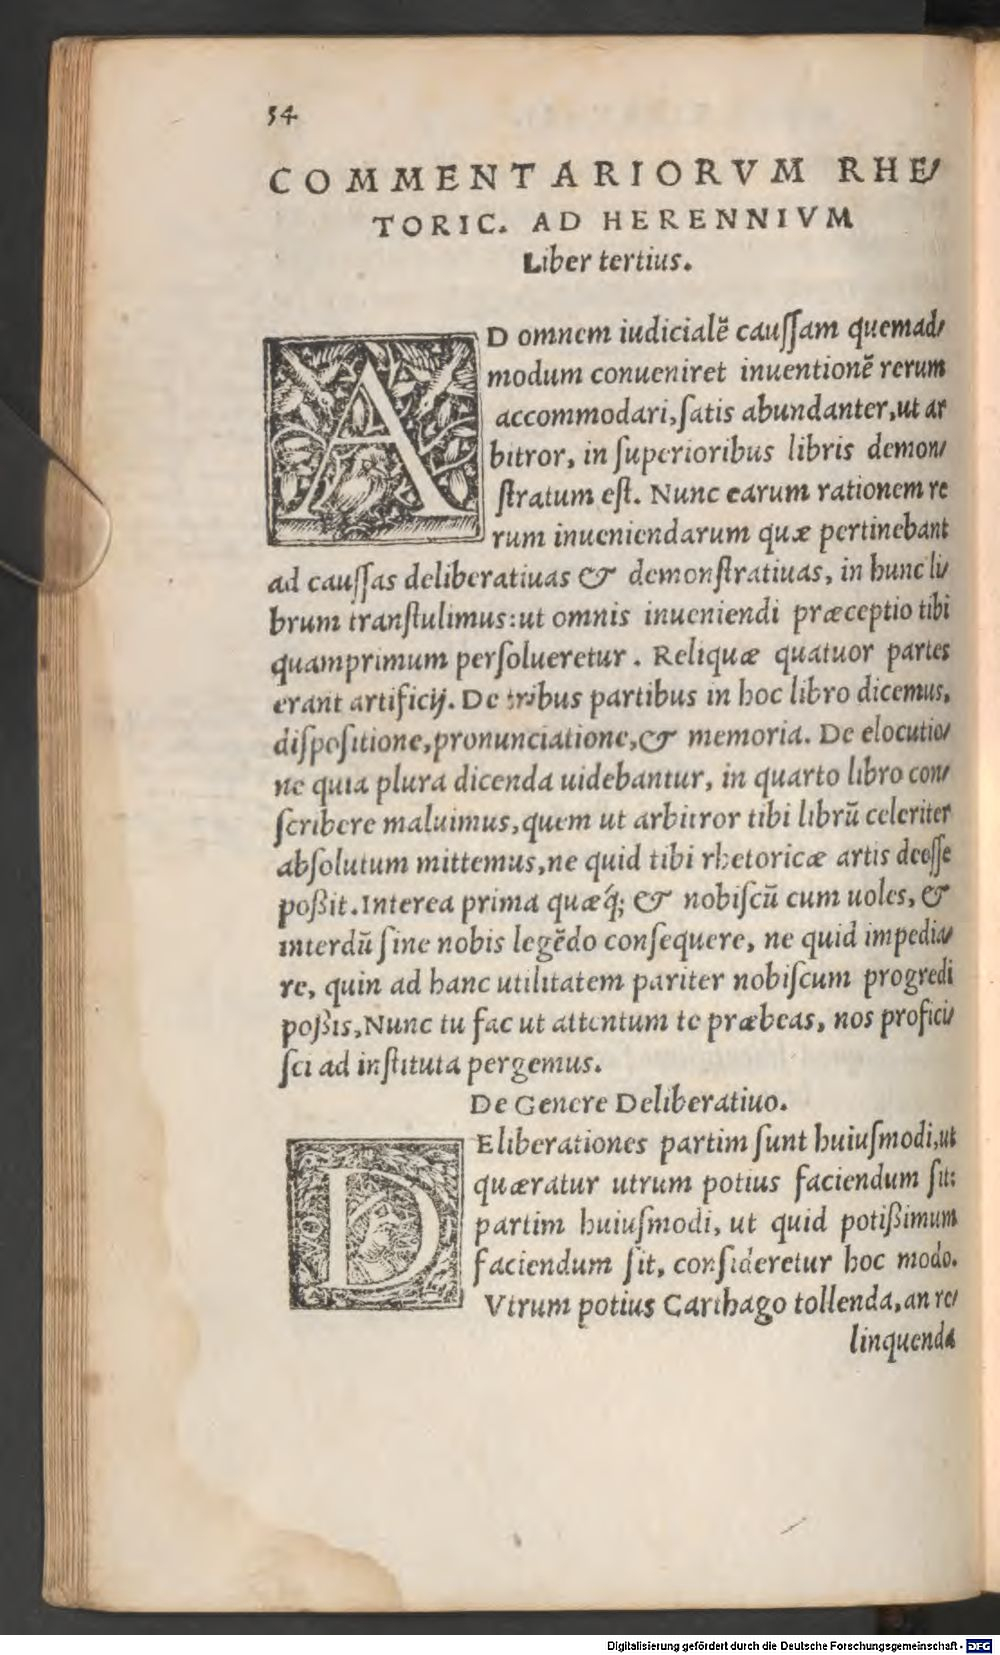 54
COMMENTARIORVM RHE/
TORIC. AD HERENNIVM
Liber tertius.
AD omnem iudicialē cauſſam quemad/
modum conueniret inuentionē rerum
accommodari, ſatis abundanter, ut ar
bitror, in ſuperioribus libris demon/
ſtratum eſt. Nunc earum rationem re
rum inueniendarum quæ pertinebant
ad cauſſas deliberatiuas & demonſtratiuas, in hunc li/
brum tranſtulimus: ut omnis inueniendi præceptio tibi
quamprimum perſolueretur. Reliquæ quatuor partes
erant artificij. De tribus partibus in hoc libro dicemus,
diſpoſitione, pronunciatione, & memoria. De elocutio/
ne quia plura dicenda uidebantur, in quarto libro con/
ſcribere maluimus, quem ut arbitror tibi librū celeriter
abſolutum mittemus, ne quid tibi rhetoricæ artis deeſſe
poßit. Interea prima quæq́; & nobiſcū cum uoles, &
interdū ſine nobis legēdo conſequere, ne quid impedia/
re, quin ad hanc utilitatem pariter nobiſcum progredi
poßis, Nunc tu fac ut attentum te præbeas, nos profici/
ſci ad inſtituta pergemus.
De Genere Deliberatiuo.
DEliberationes partim ſunt huiuſmodi, ut
quæratur utrum potius faciendum ſit:
partim huiuſmodi, ut quid potißimum
faciendum ſit, conſideretur hoc modo.
Vtrum potius Carthago tollenda, an re/
linquenda
Digitalisierung gefördert durch die Deutsche Forschungsgemeinschaft - DFG